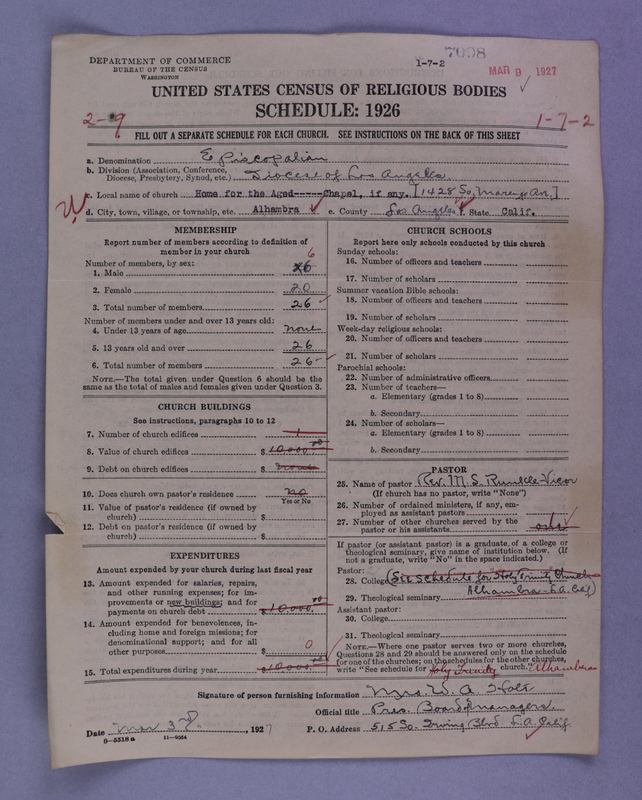 DEPARTMENT OF COMMERCE
BUREAU OF THE CENSUS
WASHINGTON
1-7-2
7098
MAR 9 1927
UNITED STATES CENSUS OF RELIGIOUS BODIES
SCHEDULE: 1926
2-9
1-7-2
FILL OUT A SEPARATE SCHEDULE FOR EACH CHURCH. SEE INSTRUCTIONS ON THE BACK OF THIS SHEET
a. Denomination Episcopalian
b. Division (Association, Conference,
Diocese, Presbytery, Synod, etc.) Diocese of Los Angeles
c. Local name of church Home for the Aged-----Chapel, if any. [1428 So. Marengo Av.]
d. City, town, village, or township, etc. Alhambra e. County Los Angeles f. State Calif.
MEMBERSHIP
Report number of members according to definition of
member in your church
Number of members, by sex:
1. Male 6
2. Female 20
3. Total number of members 26
Number of members under and over 13 years old:
4. Under 13 years of age none
5. 13 years old and over 26
6. Total number of members 26
NOTE.—The total given under Question 6 should be the
same as the total of males and females given under Question 3.
CHURCH BUILDINGS
See instructions, paragraphs 10 to 12
7. Number of church edifices 1
8. Value of church edifices $ 10000.00
9. Debt on church edifices $ none
10. Does church own pastor's residence no
Yes or No
11. Value of pastor's residence (if owned by
church) $
12. Debt on pastor's residence (if owned by
church) $
EXPENDITURES
Amount expended by your church during last fiscal year
13. Amount expended for salaries, repairs,
and other running expenses; for im-
provements or new buildings; and for
payments on church debt $10000.00
14. Amount expended for benevolences, in-
cluding home and foreign missions; for
denominational support; and for all
other purposes $ 0
15. Total expenditures during year $10000.00
CHURCH SCHOOLS
Report here only schools conducted by this church
Sunday schools:
16. Number of officers and teachers
17. Number of scholars
Summer vacation Bible schools:
18. Number of officers and teachers
19. Number of scholars
Week-day religious schools:
20. Number of officers and teachers
21. Number of scholars
Parochial schools:
22. Number of administrative officers
23. Number of teachers—
a. Elementary (grades 1 to 8)
b. Secondary
24. Number of scholars—
a. Elementary (grades 1 to 8)
b. Secondary
PASTOR
25. Name of pastor Rev. M. S. Runkle-Vicar
(If church has no pastor, write "None")
26. Number of ordained ministers, if any, em-
ployed as assistant pastors
27. Number of other churches served by the
pastor or his assistants
If pastor (or assistant pastor) is a graduate of a college or
theological seminary, give name of institution below. (If
not a graduate, write "No" in the space indicated.)
Pastor:
28. College (See schedule for Holy Trinity Church
Alhambra - L.A. Co)
29. Theological seminary
Assistant pastor:
30. College
31. Theological seminary
NOTE.—Where one pastor serves two or more churches,
Questions 28 and 29 should be answered only on the schedule
for one of the churches; on the schedules for the other churches,
write "See schedule for Holy Trinity church." Alhambra
Signature of person furnishing information Mrs. W. A. Holt
Official title Pres. Board of managers
Date Mar 3d, 1927 P. O. Address 515 So. Irving Blvd L.A. Calif.
8—5518a 11—9054